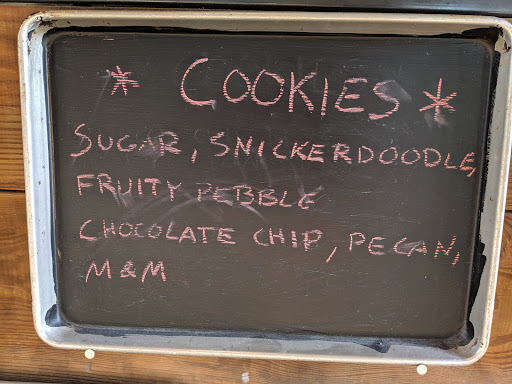 * COOKIES *
SUGAR, SNICKERDOODLE,
FRUITY PEBBLE
CHOCOLATE CHIP, PECAN,
M&M